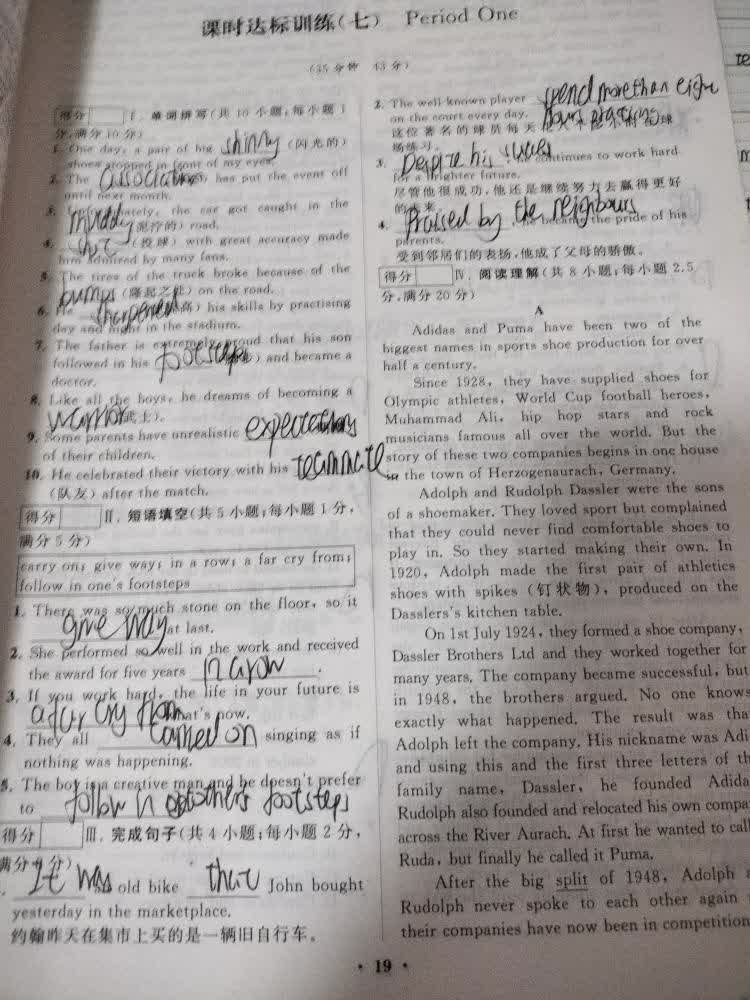 课时达标训练(七) Period One
(35分钟 43分)
得分 Ⅰ. 单词拼写(共10小题;每小题1
分,满分10分)
1. One day, a pair of big shinny (闪光的)
shoes stopped in front of my eyes.
2. The associations has put the event off
until next month.
3. Unfortunately, the car got caught in the
muddy (泥泞的) road.
4. (投球) with great accuracy made
him admired by many fans.
5. The tires of the truck broke because of the
bumps (隆起之处) on the road.
6. He sharpened 高) his skills by practising
day and night in the stadium.
7. The father is extremely proud that his son
followed in his footsteps ) and became a
doctor.
8. Like all the boys, he dreams of becoming a
warrior 武士).
9. Some parents have unrealistic expectations
of their children.
10. He celebrated their victory with his teammate
(队友) after the match.
得分 Ⅱ. 短语填空(共5小题;每小题1分,
满分5分)
carry on; give way; in a row; a far cry from;
follow in one's footsteps
1. There was so much stone on the floor, so it
give way at last.
2. She performed so well in the work and received
the award for five years in a row .
3. If you work hard, the life in your future is
a far cry from what's now.
4. They all carried on singing as if
nothing was happening.
5. The boy is a creative man and he doesn't prefer
to follow in others footsteps
得分 Ⅲ. 完成句子(共4小题;每小题2分,
满分8分)
. It was old bike that John bought
yesterday in the marketplace.
约翰昨天在集市上买的是一辆旧自行车。
2. The well-known player spend more than eight
hours practicing
on the court every day.
这位著名的球员每天 球
场练习。
3. Despite his success continues to work hard
for a brighter future.
尽管他很成功,他还是继续努力去赢得更好
的未来。
4. Praised by the neighbours he became the pride of his
parents.
受到邻居们的表扬,他成了父母的骄傲。
得分 Ⅳ. 阅读理解(共8小题;每小题2.5
分,满分20分)
A
Adidas and Puma have been two of the
biggest names in sports shoe production for over
half a century.
Since 1928, they have supplied shoes for
Olympic athletes, World Cup football heroes,
Muhammad Ali, hip hop stars and rock
musicians famous all over the world. But the
story of these two companies begins in one house
in the town of Herzogenaurach, Germany.
Adolph and Rudolph Dassler were the sons
of a shoemaker. They loved sport but complained
that they could never find comfortable shoes to
play in. So they started making their own. In
1920, Adolph made the first pair of athletics
shoes with spikes (钉状物), produced on the
Dasslers's kitchen table.
On 1st July 1924, they formed a shoe company,
Dassler Brothers Ltd and they worked together for
many years. The company became successful, but
in 1948, the brothers argued. No one knows
exactly what happened. The result was tha
Adolph left the company. His nickname was Adi
and using this and the first three letters of th
family name, Dassler, he founded Adida
Rudolph also founded and relocated his own compa
across the River Aurach. At first he wanted to call
Ruda, but finally he called it Puma.
After the big split of 1948, Adolph a
Rudolph never spoke to each other again
their companies have now been in competition
· 19 ·